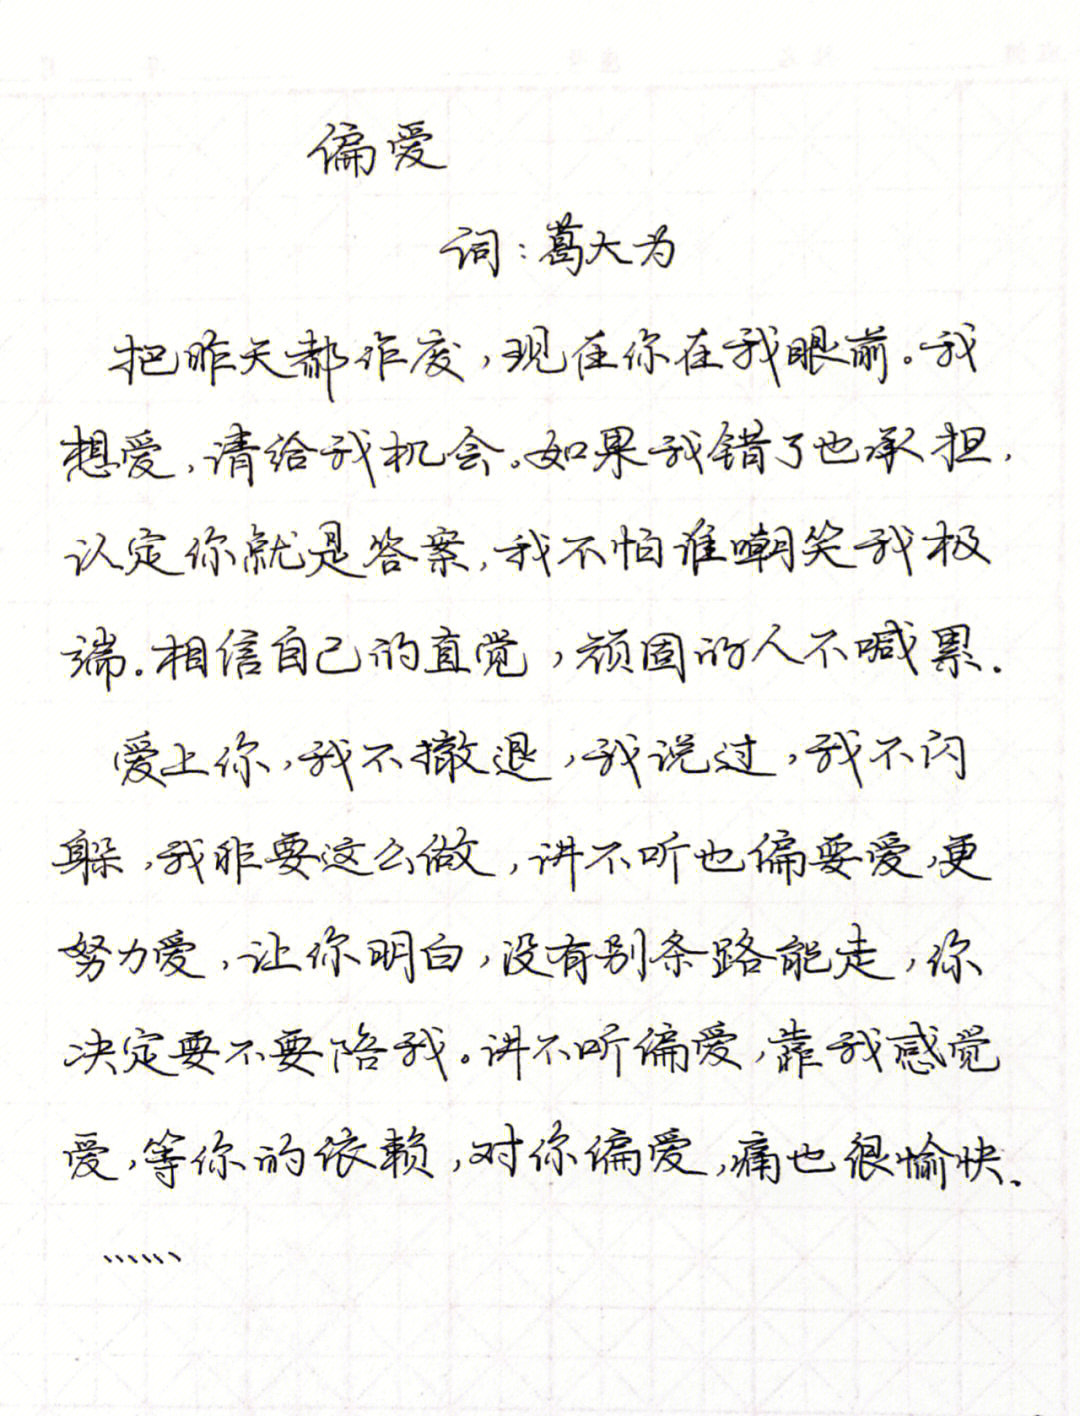 偏爱
词:葛大为
把昨天都作废,现在你在我眼前。我
想爱,请给我机会。如果我错了也承担,
认定你就是答案,我不怕谁嘲笑我极
端.相信自己的直觉,顽固的人不喊累.
爱上你,我不撤退,我说过,我不闪
躲,我非要这么做,讲不听也偏要爱,更
努力爱,让你明白,没有别条路能走,你
决定要不要陪我。讲不听偏爱,靠我感觉
爱,等你的依赖,对你偏爱,痛也很愉快.
……